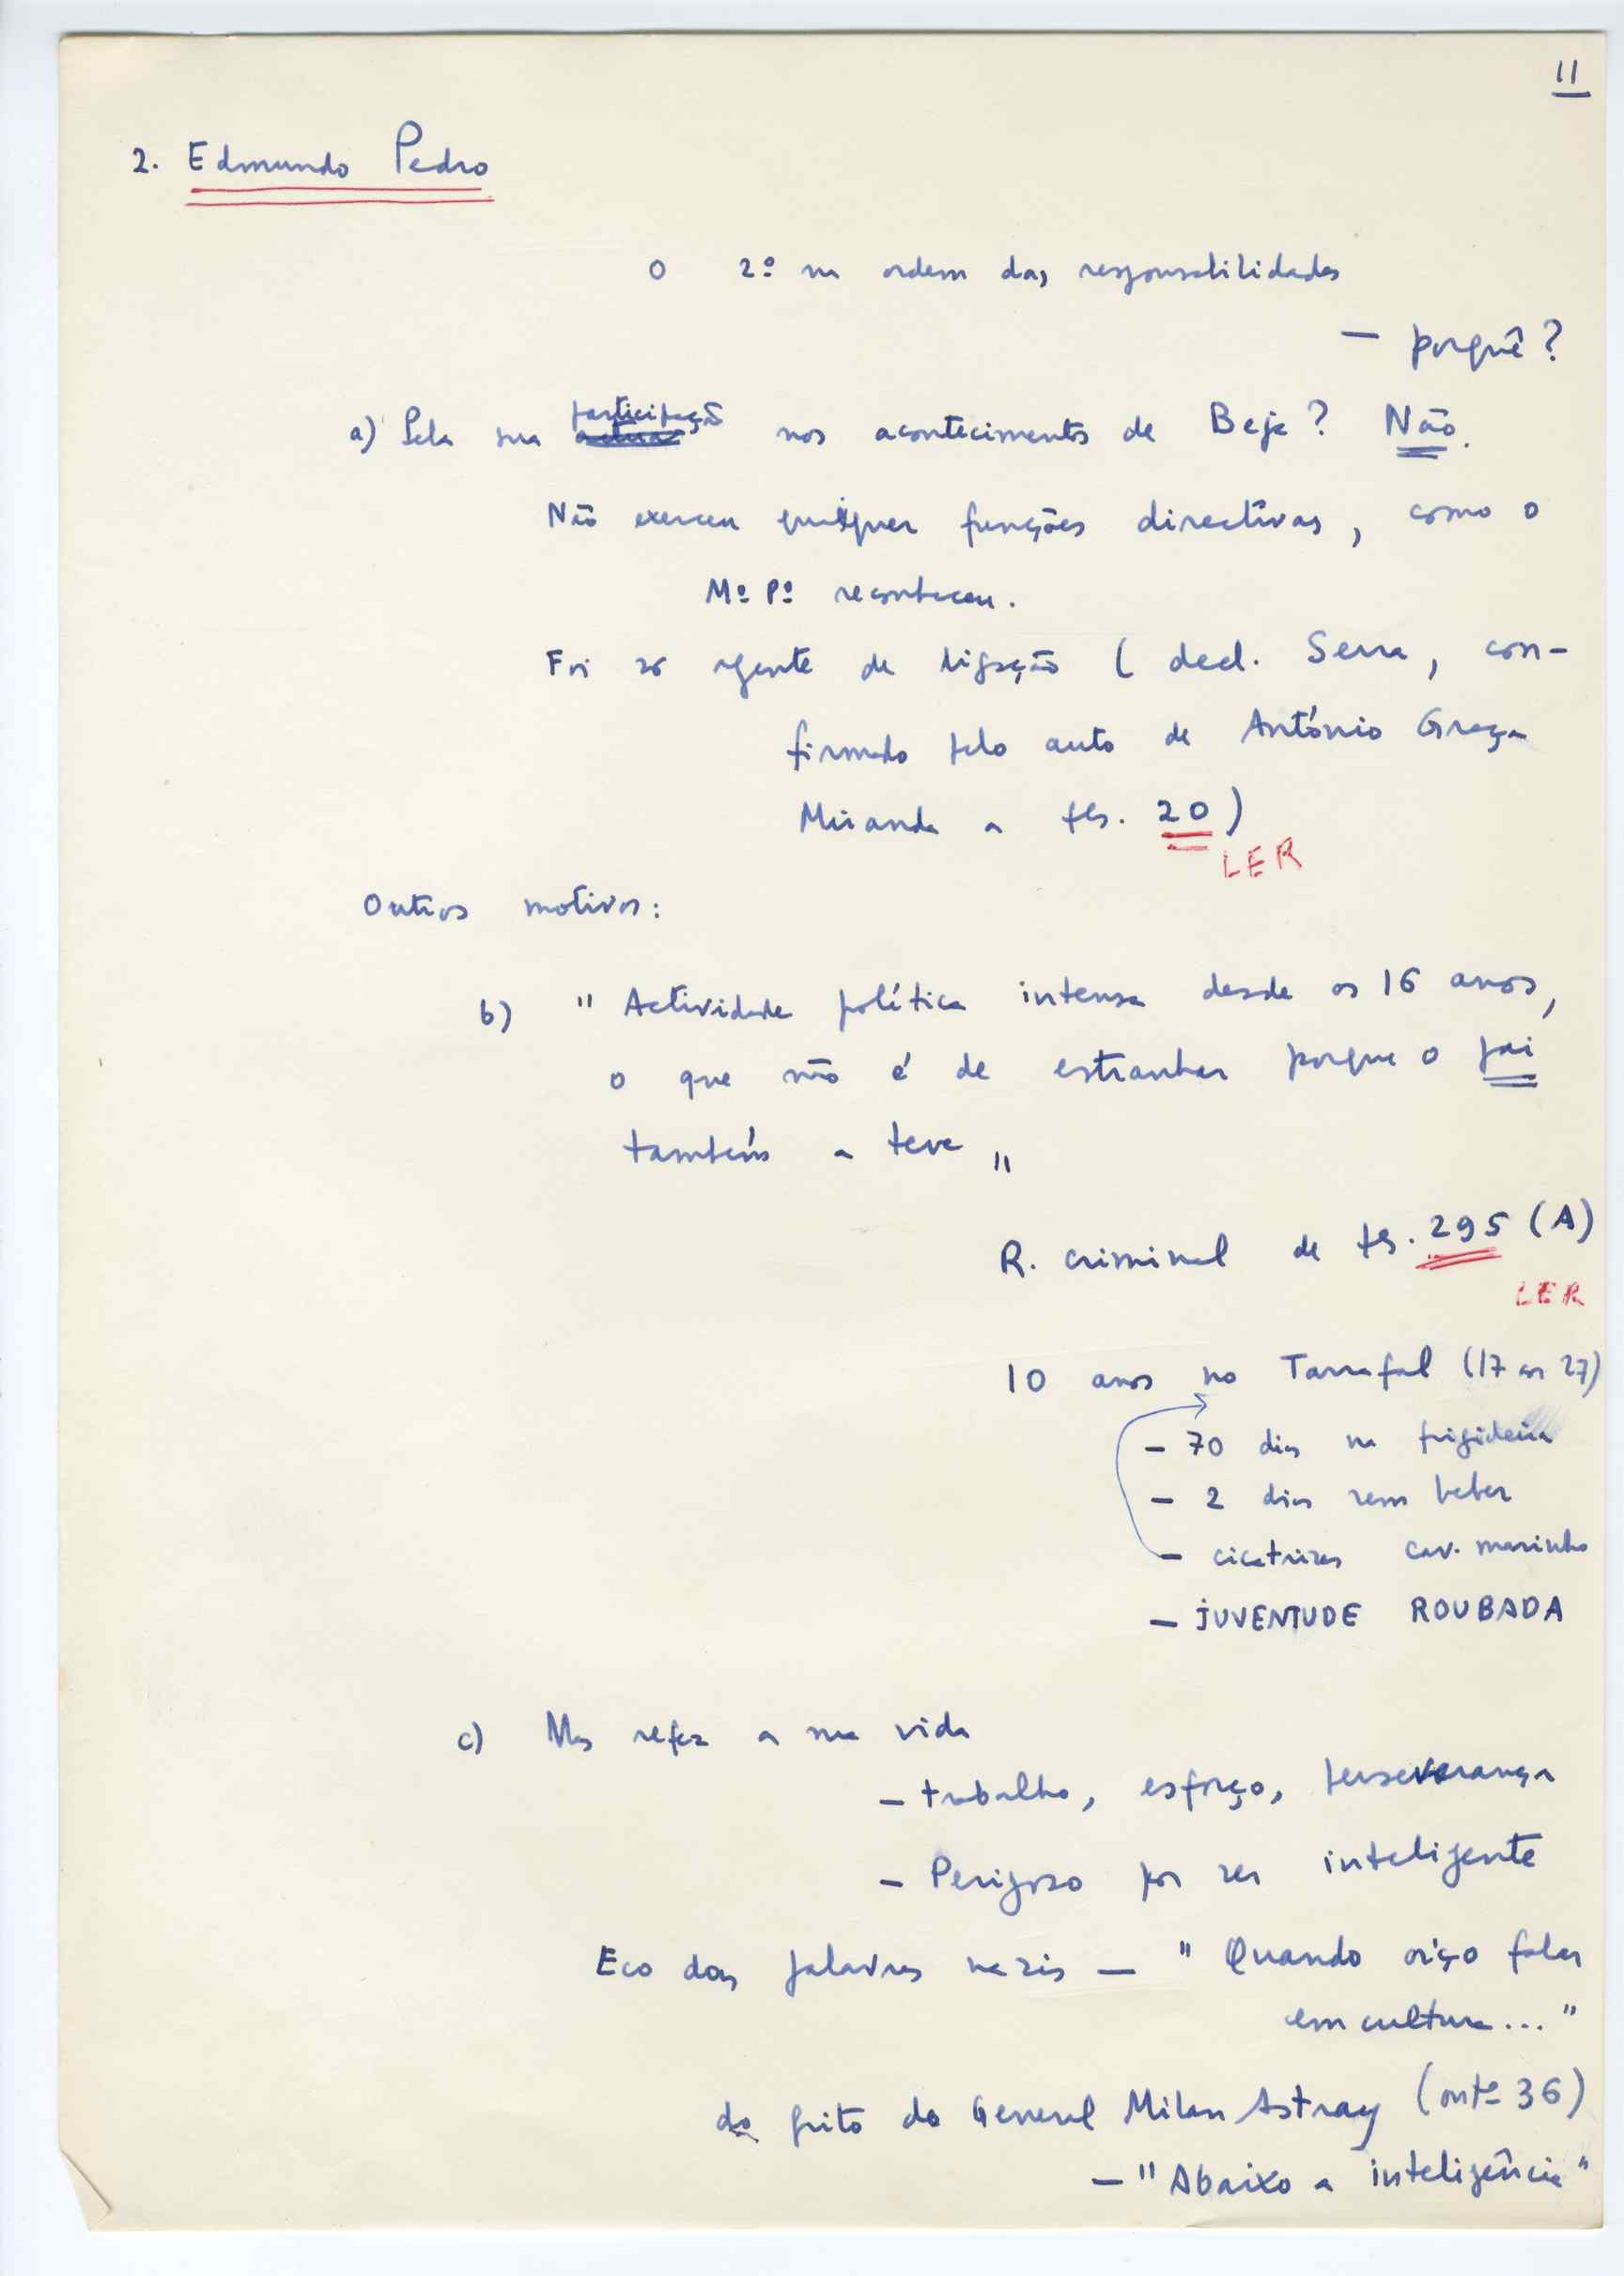 11
2. Edmundo Pedro
O 2º na ordem das responsabilidades
— porquê?
a) Pela sua participação nos acontecimentos de Beja? Não.
Não exerceu quaisquer funções directivas, como o
Mº Pº reconheceu.
Foi só agente de ligação (decl. Serra, con-
firmado pelo auto de António Graça
Miranda a fls. 20)
LER
Outros motivos:
b) "Actividade política intensa desde os 16 anos,
o que não é de estranhar porque o pai
também a teve"
R. criminal de fls. 295 (A)
LER
10 anos no Tarrafal (17 aos 27)
— 70 dias na frigideira
— 2 dias sem beber
— cicatrizes cav. marinho
— JUVENTUDE ROUBADA
c) Mas refez a sua vida
— trabalho, esforço, perseverança
— Perigoso por ser inteligente
Eco das palavras nazis — "Quando oiço falar
em cultura..."
do grito do General Milan Astray (outº 36)
— "Abaixo a inteligência"